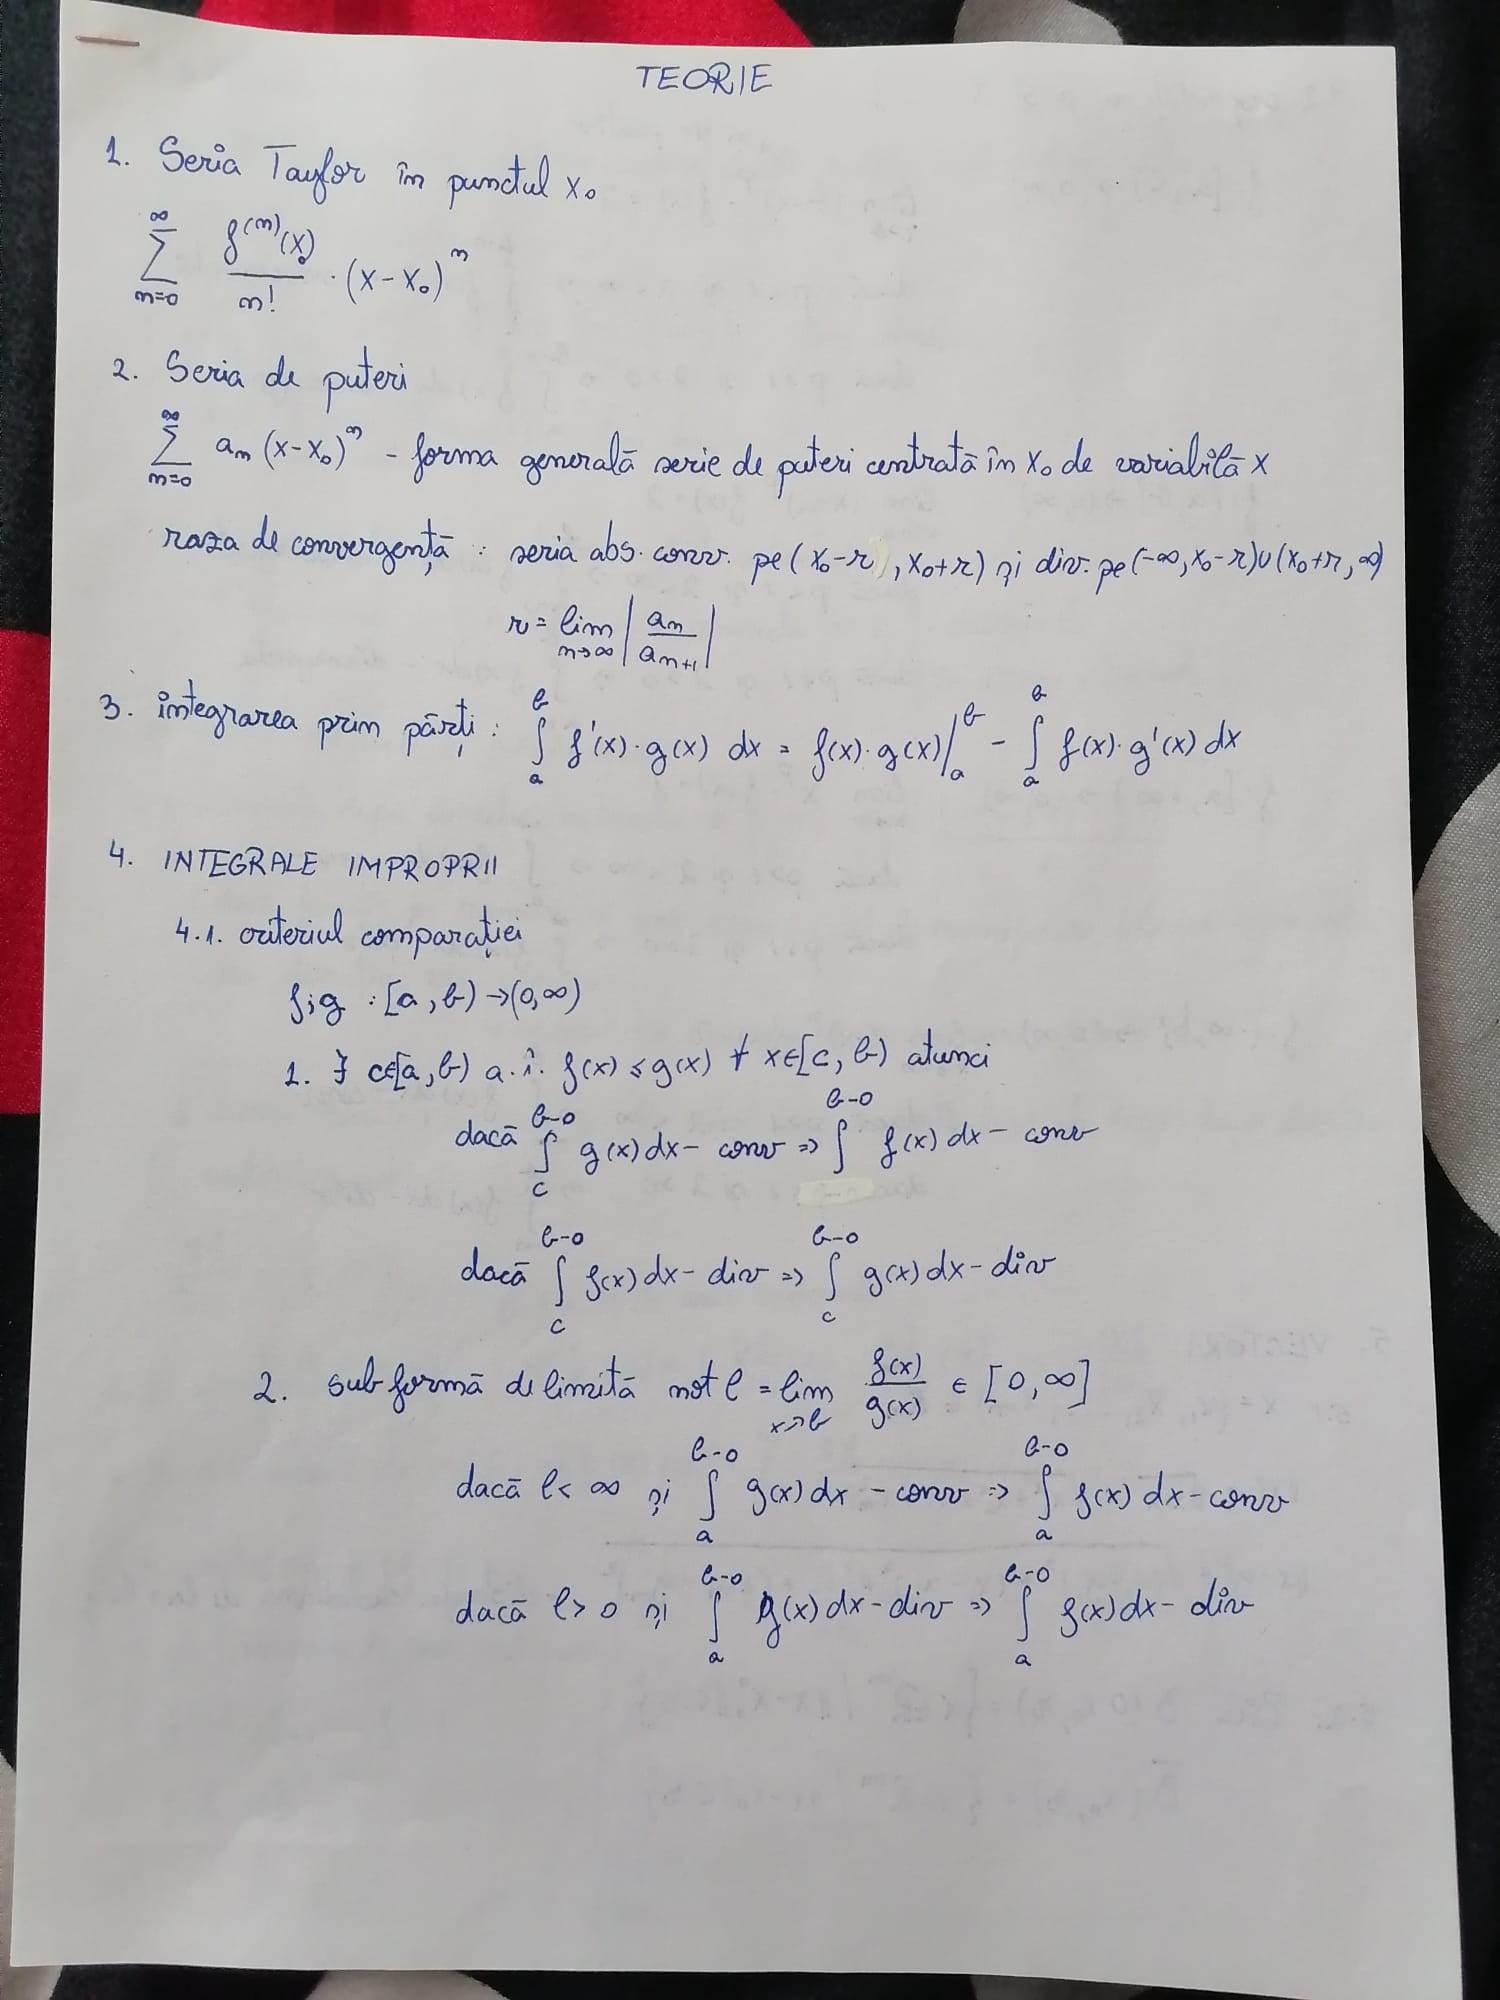 TEORIE
1. Seria Taylor în punctul x₀
∑_{n=0}^{∞} f⁽ⁿ⁾(x₀)/n! · (x-x₀)ⁿ
2. Seria de puteri
∑_{n=0}^{∞} aₙ (x-x₀)ⁿ - forma generală serie de puteri centrată în x₀ de variabilă x
raza de convergență : seria abs. conv. pe (x₀-r, x₀+r) și div. pe (-∞, x₀-r)∪(x₀+r, ∞)
r = lim_{n→∞} |aₙ/aₙ₊₁|
3. integrarea prin părți : ∫_a^b f'(x)·g(x) dx = f(x)·g(x)|_a^b - ∫_a^b f(x)·g'(x) dx
4. INTEGRALE IMPROPRII
4.1. criteriul comparației
f;g : [a,b)→(0,∞)
1. ∃ c∈[a,b) a.î. f(x) ≤ g(x) ∀ x∈[c,b) atunci
dacă ∫_c^{b-0} g(x)dx - conv ⇒ ∫^{b-0} f(x)dx - conv
dacă ∫_c^{b-0} f(x)dx - div ⇒ ∫_c^{b-0} g(x)dx - div
2. sub formă de limită not l = lim_{x→b} f(x)/g(x) ∈ [0,∞]
dacă l < ∞ și ∫_a^{b-0} g(x)dx - conv ⇒ ∫_a^{b-0} f(x)dx - conv
dacă l > 0 și ∫_a^{b-0} g(x)dx - div ⇒ ∫_a^{b-0} f(x)dx - div